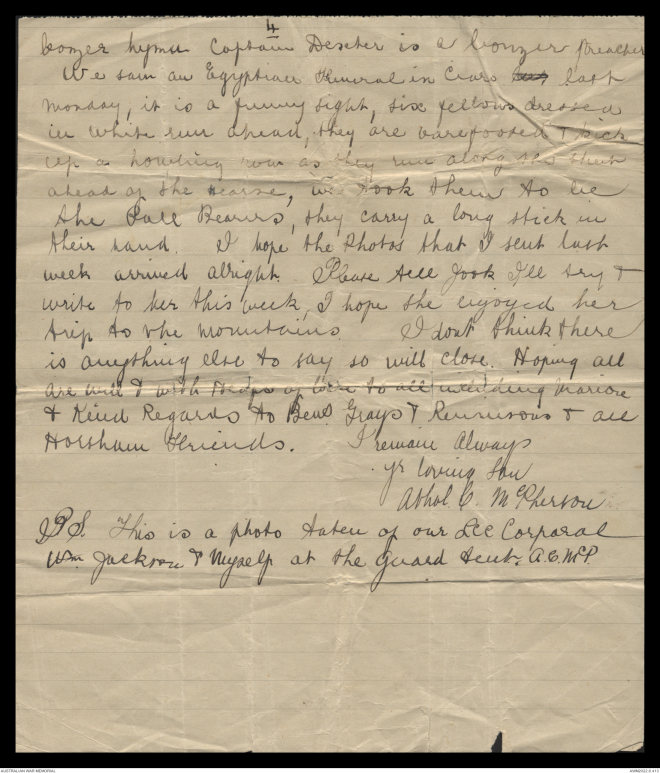 4
bonzer hymn Captain Dexter is a bonzer preacher
We saw an Egyptian Funeral in Ciaro last
monday, it is a funny sight, six fellows dressed
in white run ahead, they are barefooted & kick
up a howling row as they run along the street
ahead of the hearse, we took them to be
the Pall Bearers, they carry a long stick in
their hand. I hope the Photos that I sent last
week arrived alright. Please tell Jook I'll try &
write to her this week, I hope she enjoyed her
trip to the mountains. I dont think there
is anything else to say so will close. Hoping all
are well & with heaps of love to all including Marion
& Kind Regards to Bens Grays & Rennisons & all
Horsham Friends. I remain Always
yr loving Son
Athol C. McPherson
P.S. This is a photo taken of our Lce Corporal
Wm Jackson & Myself at the guard tent. A.C.McP.
AUSTRALIAN WAR MEMORIAL